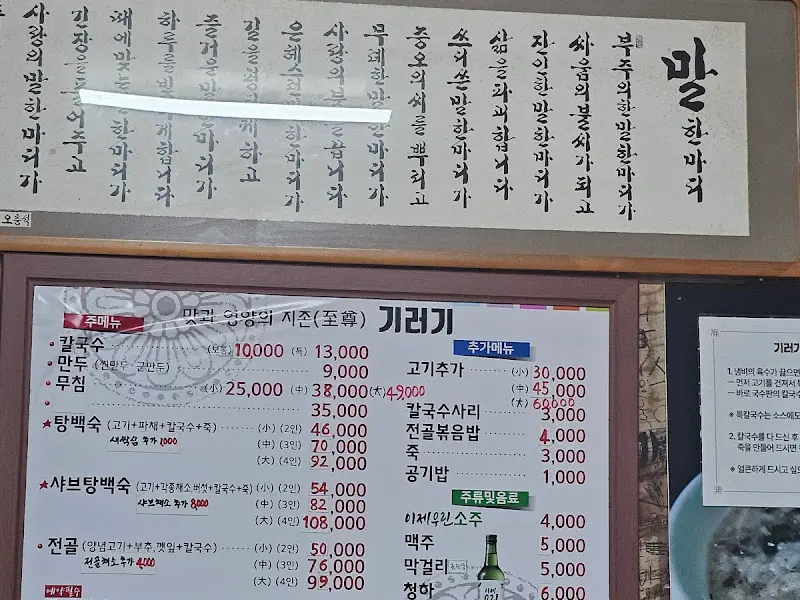 말 한마디
부주의한 말 한마디가
싸움의 불씨가 되고
잔인한 말 한마디가
삶을 파괴합니다
쓰디쓴 말 한마디가
증오의 씨를 뿌리고
무례한 말 한마디가
사랑의 불을 끕니다
은혜스런 한마디가
길을 평탄케 하고
즐거운 말 한마디가
하루를 빛나게 합니다
때에 맞는 말 한마디가
긴장을 풀어주고
사랑의 말 한마디가
오충석
맛과 영양의 지존(至尊) 기러기
주메뉴
칼국수 (보통) 10,000 (특) 13,000
만두 (찐만두·군만두) 9,000
무침 (小) 25,000 (中) 38,000 (大) 49,000
35,000
탕백숙 (고기+파채+칼국수+죽) (小) (2인) 46,000
새싹삼 추가 1000 (中) (3인) 70,000
(大) (4인) 92,000
샤브탕백숙 (고기+각종채소,버섯+칼국수+죽) (小) (2인) 54,000
샤브채소 추가 8,000 (中) (3인) 82,000
(大) (4인) 108,000
전골 (양념고기+부추,깻잎+칼국수) (小) (2인) 50,000
전골채소 추가 4,000 (中) (3인) 76,000
(大) (4인) 99,000
예약필수
추가메뉴
고기추가 (小) 30,000
(中) 45,000
(大) 60,000
칼국수사리 3,000
전골볶음밥 4,000
죽 3,000
공기밥 1,000
주류및음료
이제우린소주 4,000
맥주 5,000
막걸리 5,000
청하 6,000
기러기
1. 냄비의 육수가 끓으면
– 먼저 고기를 건져서
– 바로 국수판의 칼국수
※ 특칼국수는 소스에도
2. 칼국수를 다 드신 후
죽을 만들어 드시면
※ 얼큰하게 드시고 싶